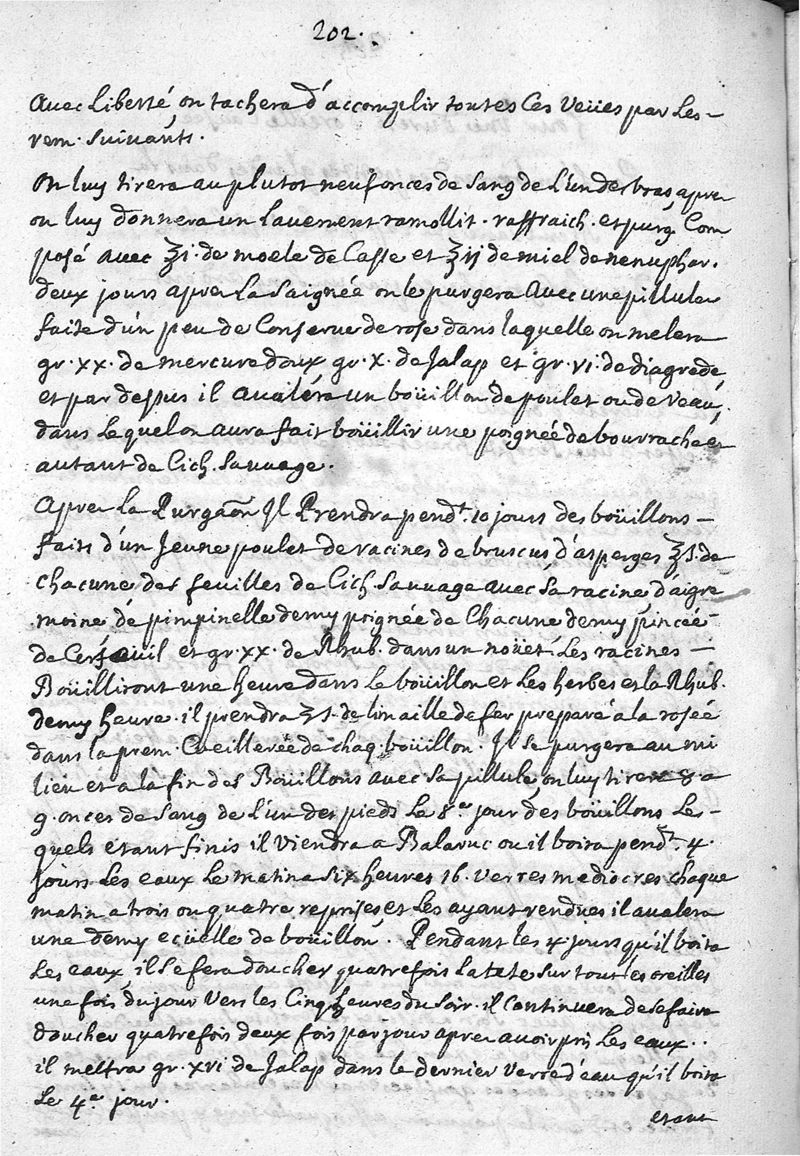 202.
avec Liberté on tachera d'accomplir toutes Ces Veües par Les
rem. suivants.
On luy tirera au plutot neuf onces de sang de L'un des bras, apres
on luy donnera un Lavement ramollit. raffraich. et purg. Com
posé avec ℥i. de moele de Casse et ℥ij de miel de nenuphar.
deux jours apres La saignée on le purgera Avec une pillule
faite d'un peu de Conserve de rose dans laquelle on melera
gr. xx. de mercure doux gr. x. de Jalap et gr. vi. de diagrede
et par dessus il avalera un boüillon de poulet ou de Veau,
dans Lequel on aura fait boüillir une poignée de bourrache et
autant de Cich. sauvage.
Apres La Purgaōn Il Prendra pendt. 10 jours des boüillons
faits d'un Jeune poulet de racines de bruscus d'asperges ℥s. de
chacune des feuilles de Cich. sauvage avec sa racine d'aigre
moine de pimpinelle demy poignée de Chacune demy pincée
de Cerfeuil et gr. xx. de Rhub. dans un noüet. Les racines
Boüilliront une heure dans Le boüillon et Les herbes et la Rhub.
demy heure. il prendra de limaille de fer preparé a la rosée
dans la prem. Cueillerée de chaq. boüillon. Il se purgera au mi
lieu et a la fin des Boüillons avec sa pillule, on luy tirera 8 a
9. onces de sang de L'un des pieds Le 8.e jour des boüillons Les
quels etant finis il Viendra a Balaruc ou il boira pendt. 4.
jours Les eaux Le matin a six heures 16. verres mediocres chaque
matin a trois ou quatre reprises et Les ayant rendües il avalera
une demy ecüelle de boüillon. Pendant les 4 jours qu'il boira
Les eaux, il se fera doucher quatre fois La tete sur tout les oreilles
une fois du jour Vers les Cinq heures du soir. il Continuera de se faire
doucher quatre fois deux fois par jour apres avoir pris Les eaux..
il mettra gr. xvi de Jalap dans le dernier Verre d'eau qu'il boira
Le 4.e jour.
etant